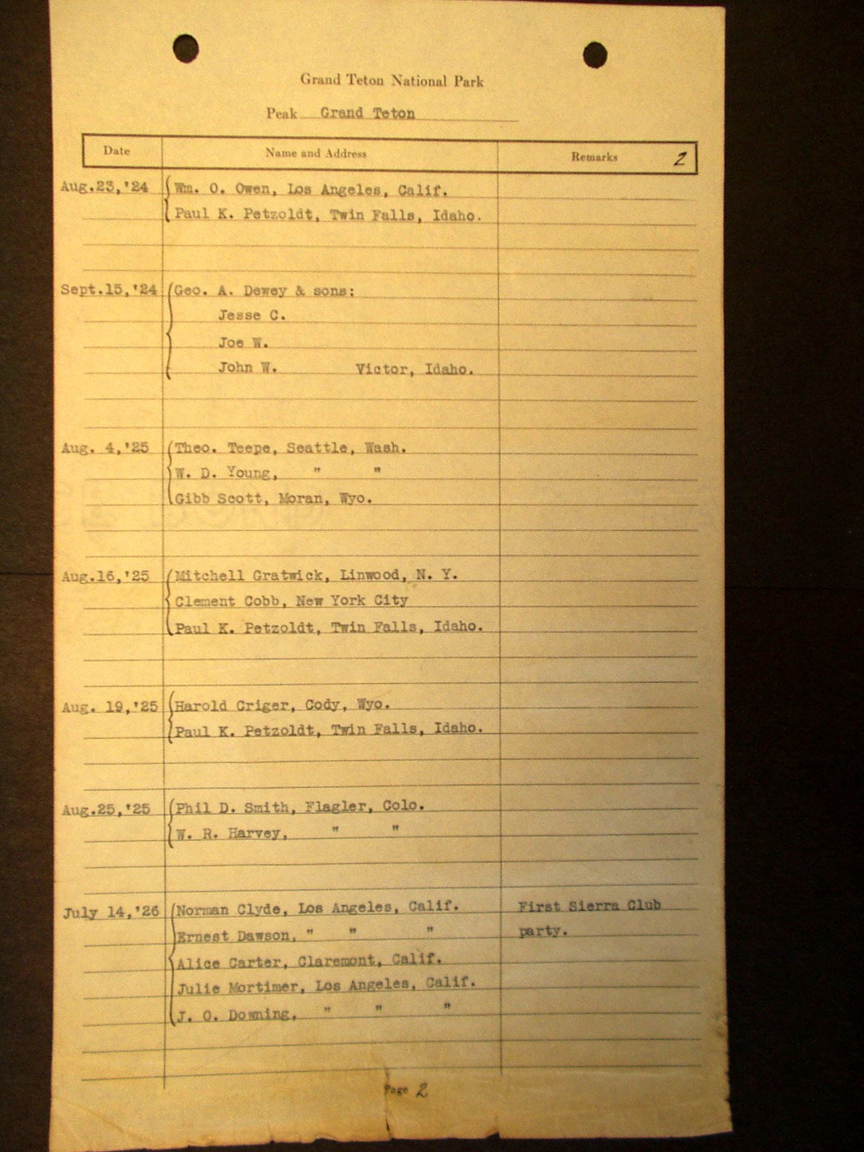 Grand Teton National Park
Peak Grand Teton
Date Name and Address Remarks 2
Aug.23,'24 Wm. O. Owen, Los Angeles, Calif.
Paul K. Petzoldt, Twin Falls, Idaho.
Sept.15,'24 Geo. A. Dewey & sons:
Jesse C.
Joe W.
John W. Victor, Idaho.
Aug. 4,'25 Theo. Teepe, Seattle, Wash.
W. D. Young, " "
Gibb Scott, Moran, Wyo.
Aug.16,'25 Mitchell Gratwick, Linwood, N. Y.
Clement Cobb, New York City
Paul K. Petzoldt, Twin Falls, Idaho.
Aug. 19,'25 Harold Criger, Cody, Wyo.
Paul K. Petzoldt, Twin Falls, Idaho.
Aug.25,'25 Phil D. Smith, Flagler, Colo.
W. R. Harvey, " "
July 14,'26 Norman Clyde, Los Angeles, Calif. First Sierra Club
Ernest Dawson, " " " party.
Alice Carter, Claremont, Calif.
Julie Mortimer, Los Angeles, Calif.
J. O. Downing, " " "
Page 2